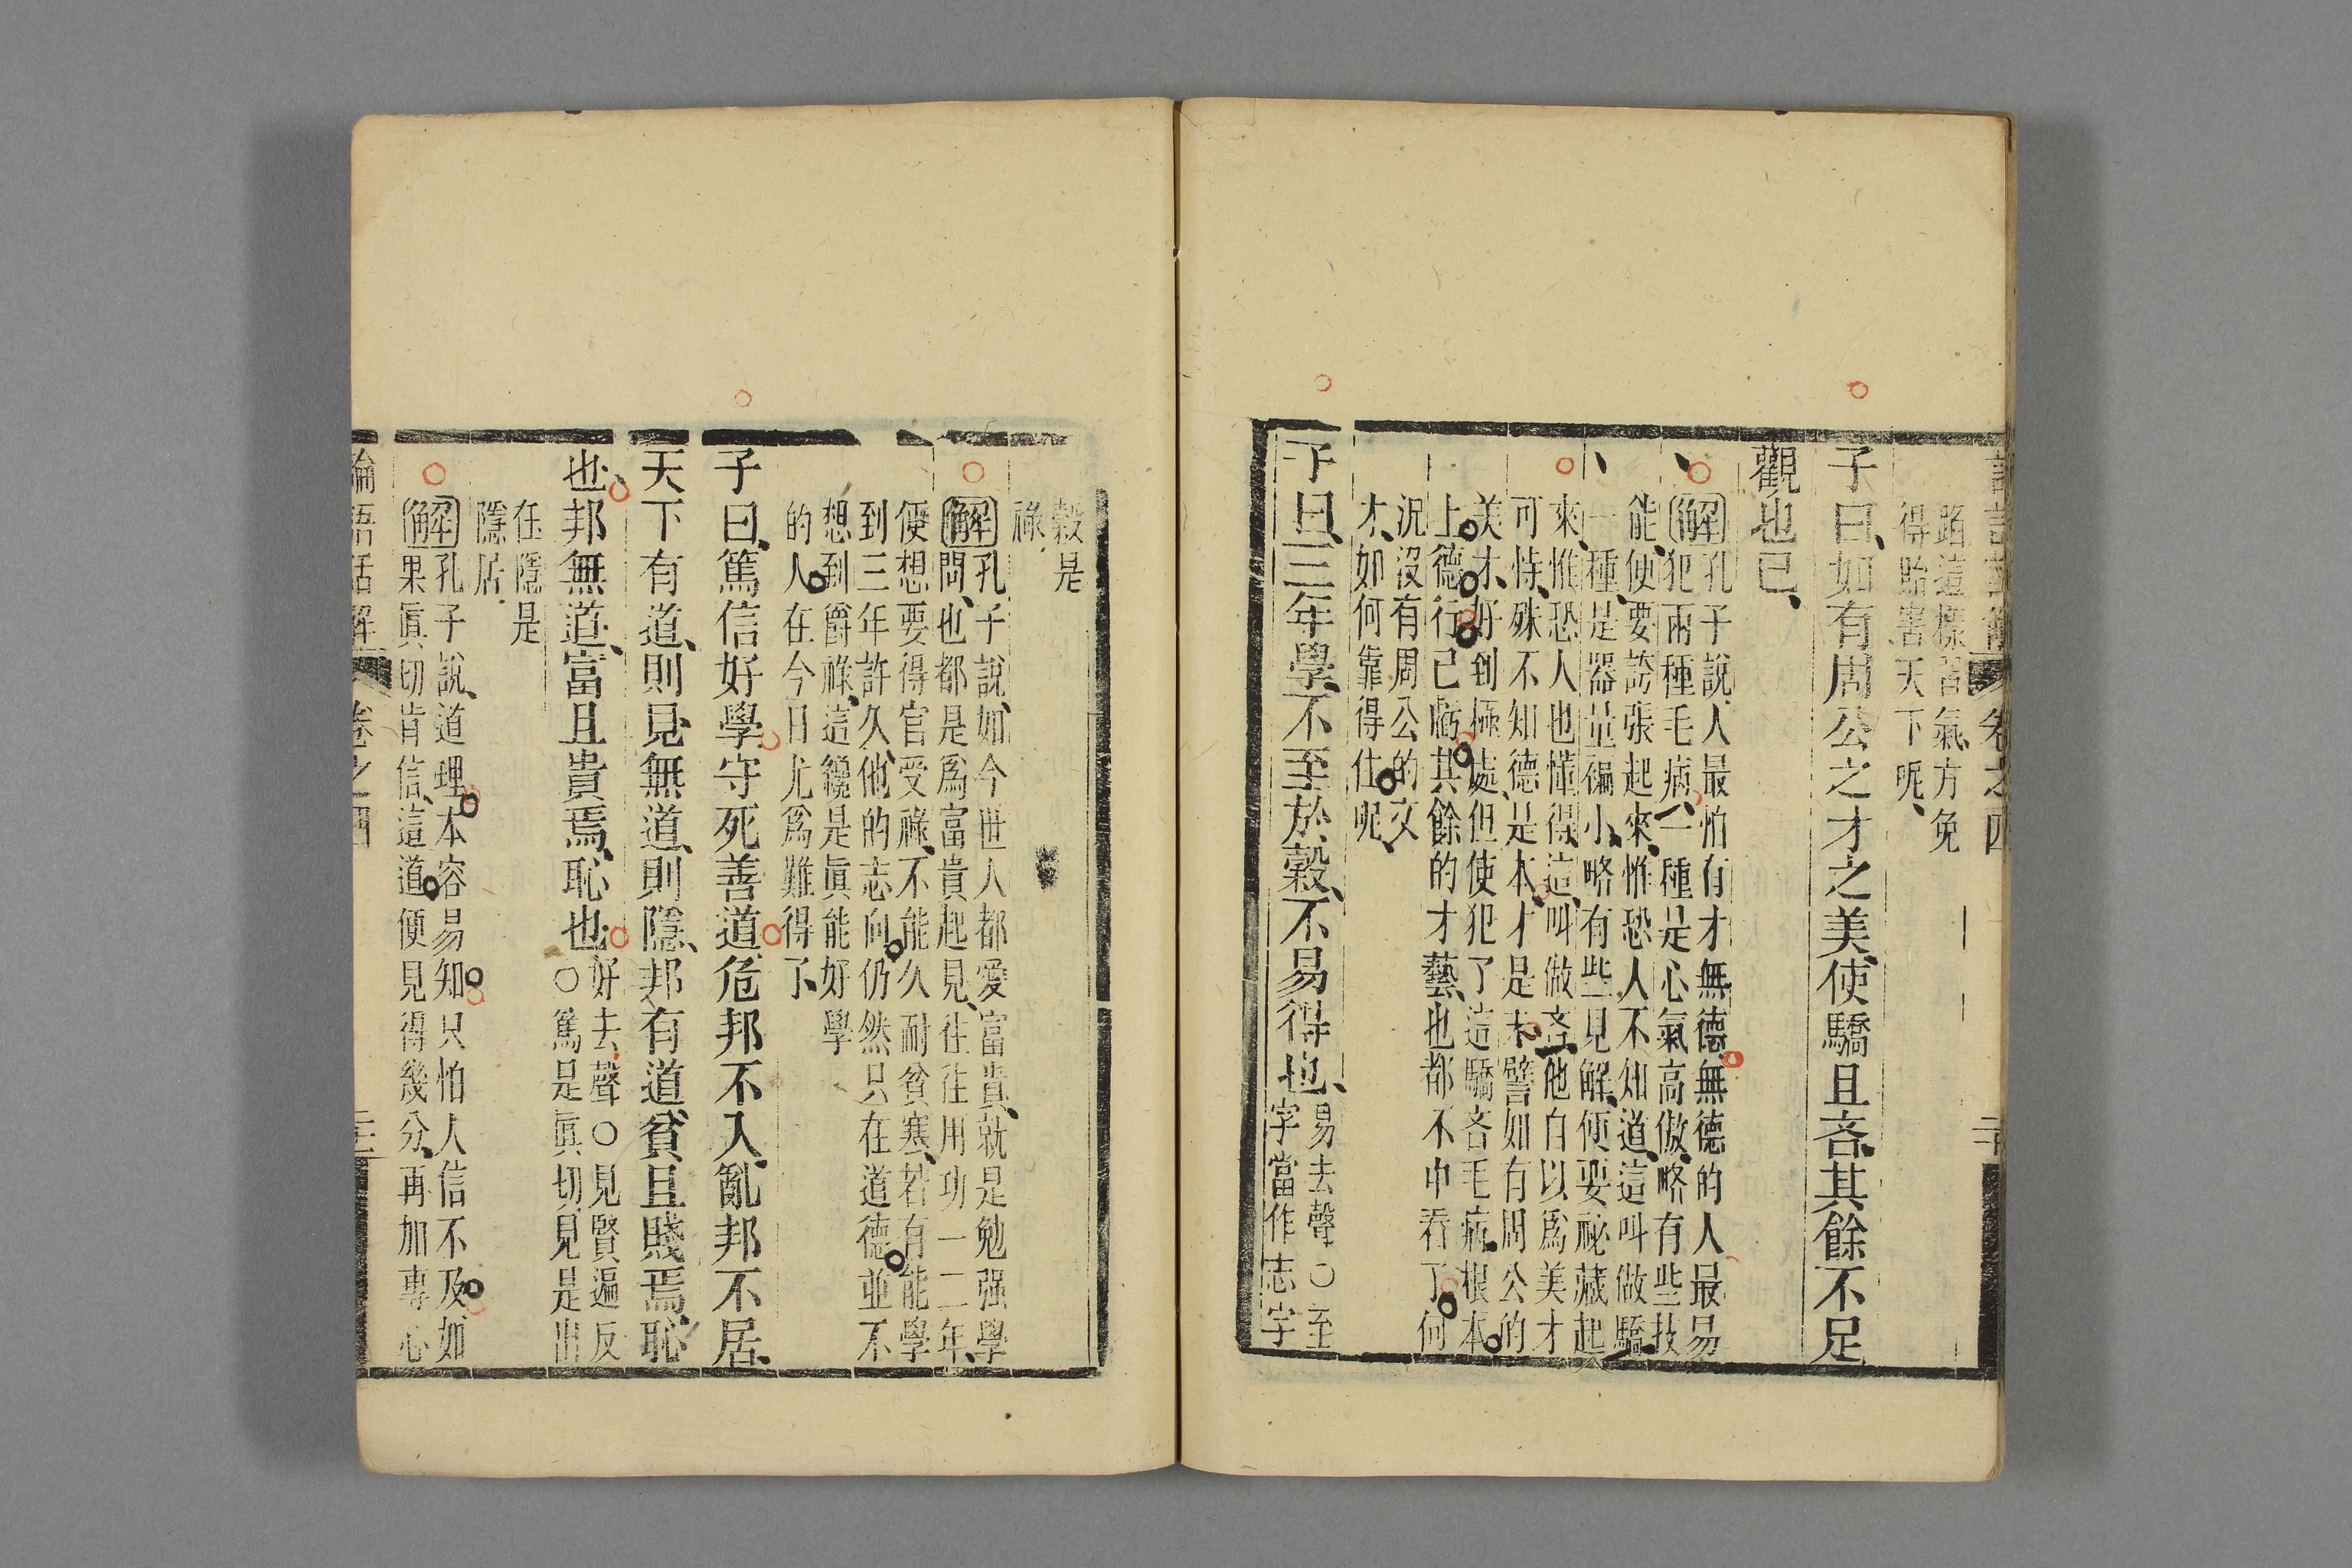 論語話解 卷之四 二十
蹈這樣習氣、方免
得貽害天下呢、
子曰、如有周公之才之美、使驕且吝、其餘不足
觀也已、
解孔子說、人最怕有才無德、無德的人最易
犯兩種毛病、一種是心氣高傲、略有些技
能、便要誇張起來、惟恐人不知道、這叫做驕、
一種是器量褊小、略有些見解、便要祕藏起
來、惟恐人也懂得、這叫做吝、他自以爲美才
可恃、殊不知德是本、才是末、譬如有周公的
美才、好到極處、但使犯了這驕吝毛病、根本
上德行已虧、其餘的才藝、也都不中看了、何
況沒有周公的文
才、如何靠得住呢、
子曰、三年學、不至於穀、不易得也、
易去聲○至
字當作志字
穀是
祿、
解孔子說、如今世人都愛富貴、就是勉强學
問、也都是爲富貴起見、往往用功一二年、
便想要得官受祿、不能久耐貧寒、若有能學
到三年許久、他的志向仍然只在道德、並不
想到爵祿、這纔是眞能好學
的人、在今日尤爲難得了、
子曰、篤信好學、守死善道、危邦不入、亂邦不居、
天下有道、則見、無道、則隱、邦有道、貧且賤焉、恥
也、邦無道、富且貴焉、恥也、
好去聲○見賢遍反
○篤是眞切、見是出
仕、隱是
隱居、
解孔子說、道理本容易知、只怕人信不及、如
果眞切肯信、這道便見得幾分、再加專心
論語話解 卷之四 二十一